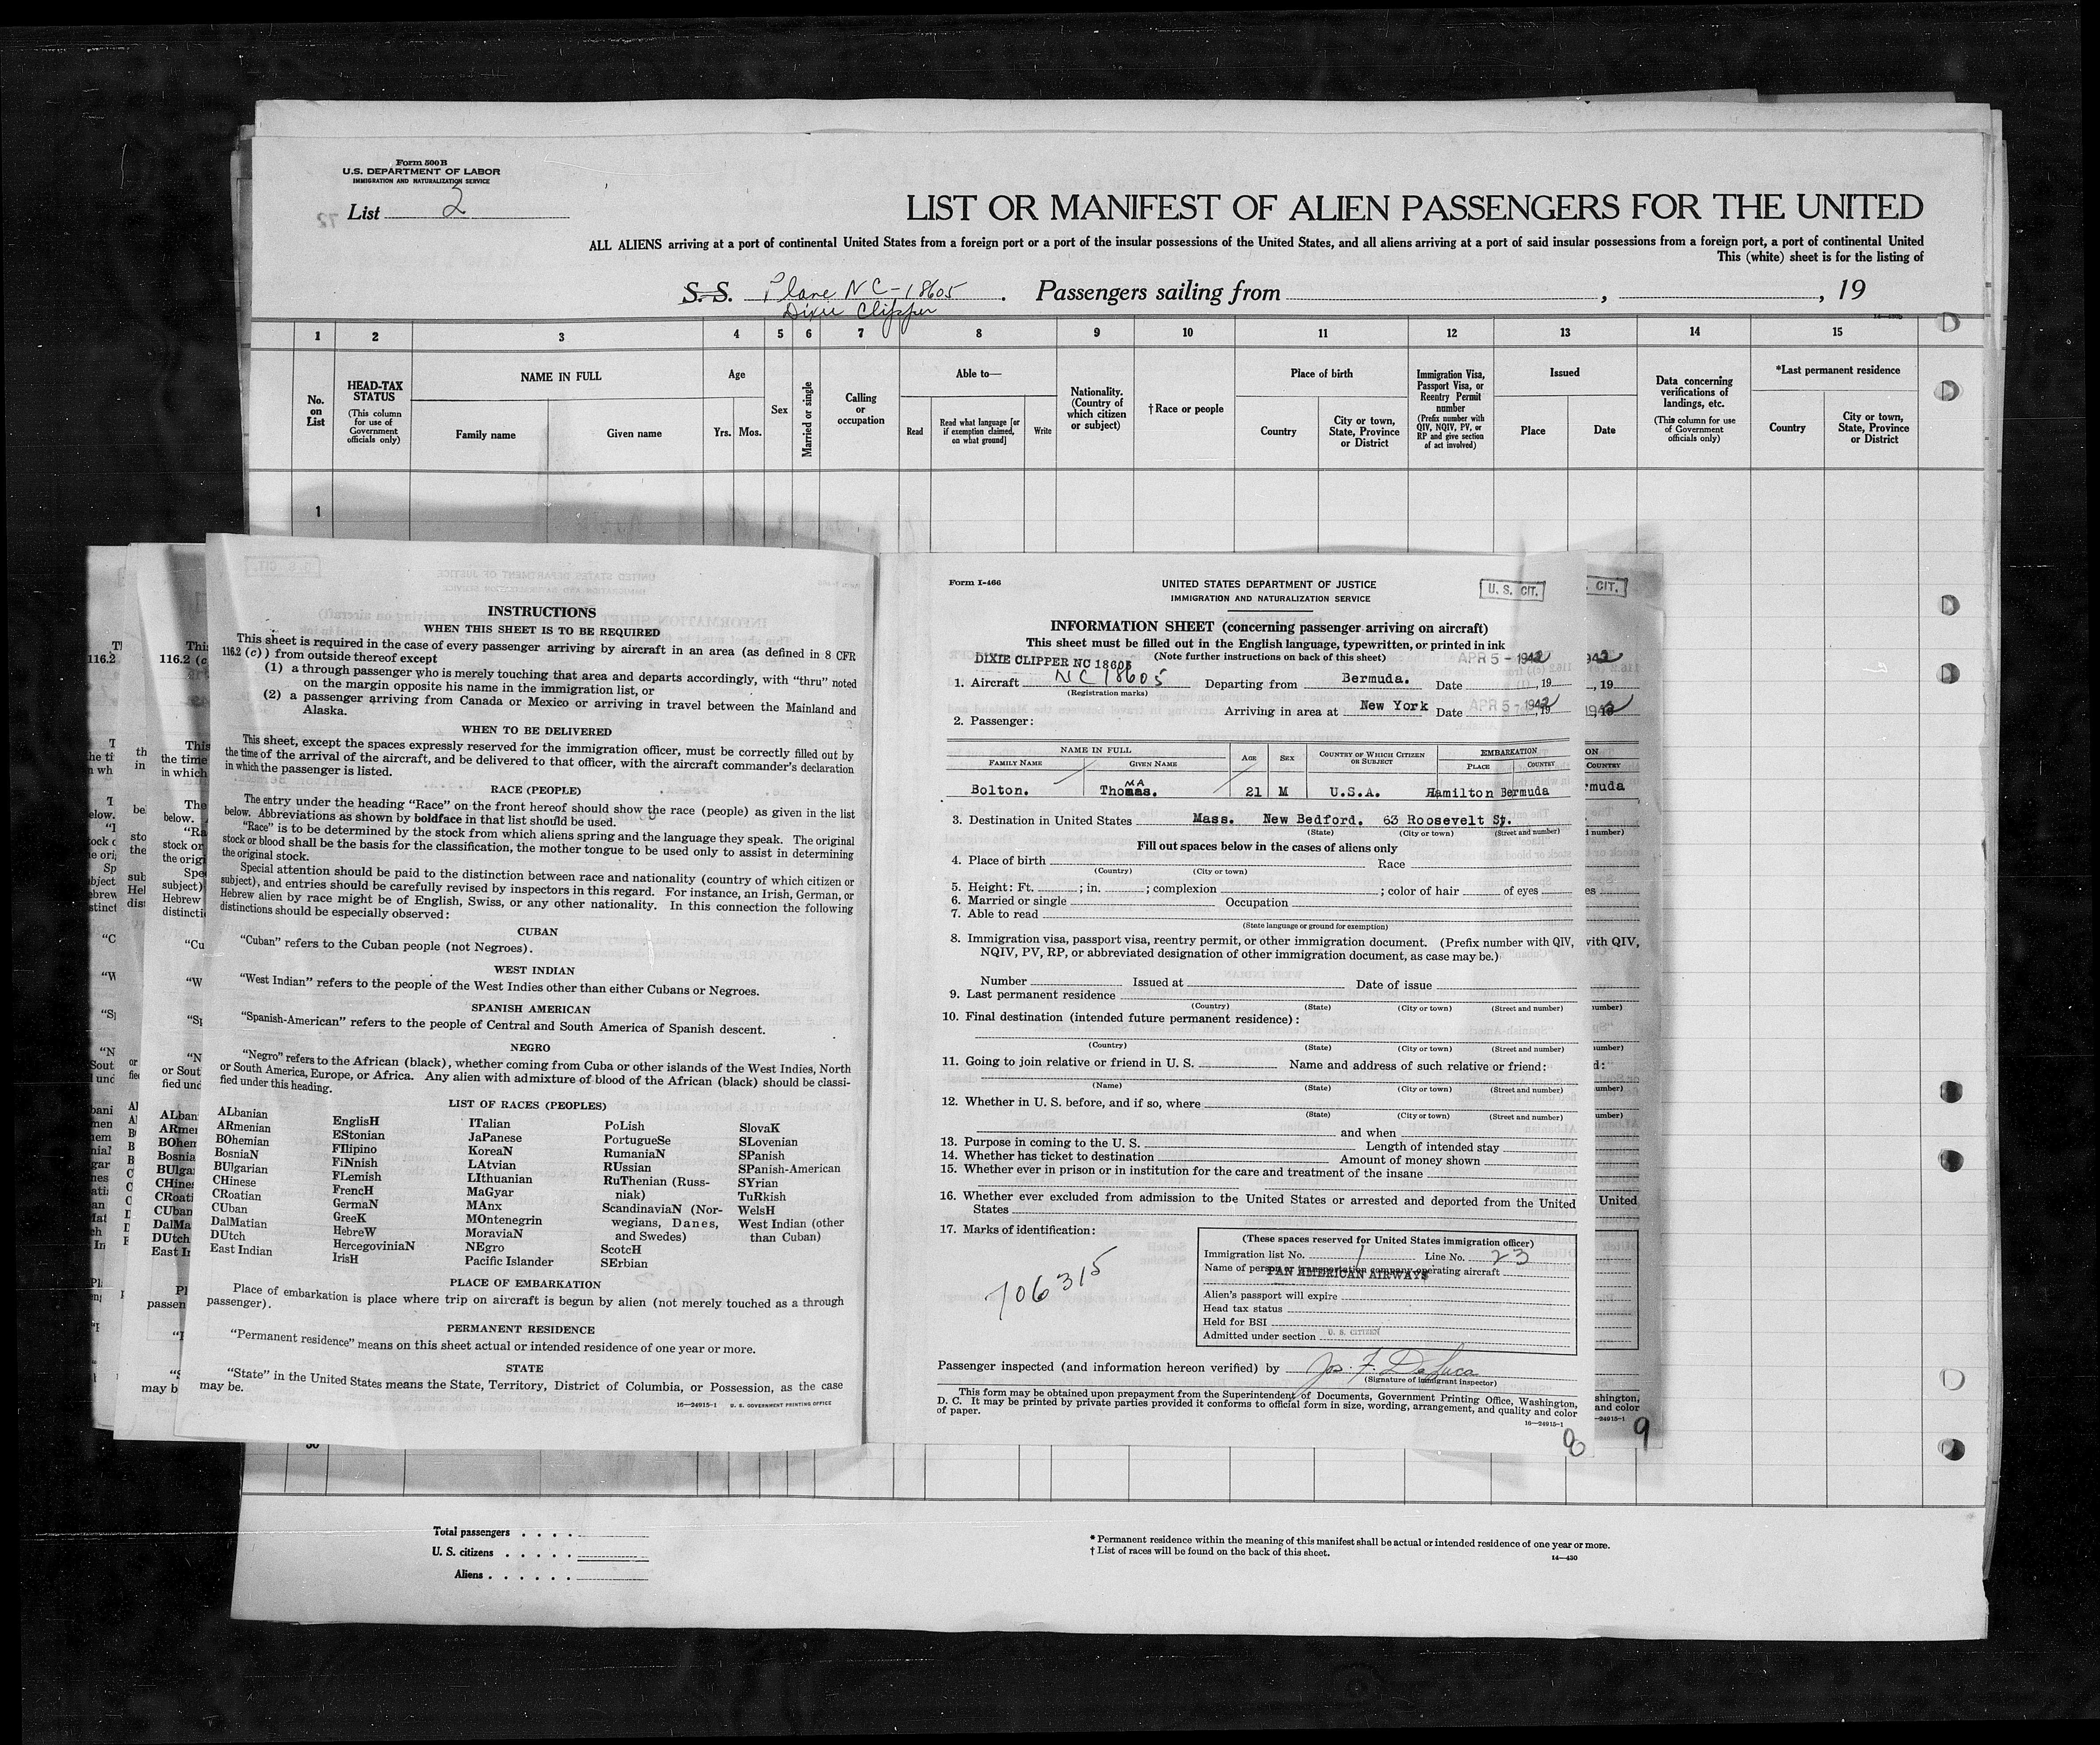 Form 500 B
U.S. DEPARTMENT OF LABOR
IMMIGRATION AND NATURALIZATION SERVICE
List 2
72
LIST OR MANIFEST OF ALIEN PASSENGERS FOR THE UNITED
ALL ALIENS arriving at a port of continental United States from a foreign port or a port of the insular possessions of the United States, and all aliens arriving at a port of said insular possessions from a foreign port, a port of continental United
This (white) sheet is for the listing of
S. S. Plane NC-18605 . Passengers sailing from , , 19
Dixie Clipper
1 2 3 4 5 6 7 8 9 10 11 12 13 14 15
No. on List
HEAD-TAX STATUS
(This column for use of Government officials only)
NAME IN FULL
Family name
Given name
Age
Yrs. Mos.
Sex
Married or single
Calling or occupation
Able to—
Read
Read what language [or if exemption claimed, on what ground]
Write
Nationality. (Country of which citizen or subject)
† Race or people
Place of birth
Country
City or town, State, Province or District
Immigration Visa, Passport Visa, or Reentry Permit number
(Prefix number with QIV, NQIV, PV, or RP and give section of act involved)
Issued
Place
Date
Data concerning verifications of landings, etc.
(This column for use of Government officials only)
*Last permanent residence
Country
City or town, State, Province or District
1
INSTRUCTIONS
WHEN THIS SHEET IS TO BE REQUIRED
This sheet is required in the case of every passenger arriving by aircraft in an area (as defined in 8 CFR
116.2 (c)) from outside thereof except
(1) a through passenger who is merely touching that area and departs accordingly, with "thru" noted
on the margin opposite his name in the immigration list, or
(2) a passenger arriving from Canada or Mexico or arriving in travel between the Mainland and
Alaska.
WHEN TO BE DELIVERED
This sheet, except the spaces expressly reserved for the immigration officer, must be correctly filled out by
the time of the arrival of the aircraft, and be delivered to that officer, with the aircraft commander's declaration
in which the passenger is listed.
RACE (PEOPLE)
The entry under the heading "Race" on the front hereof should show the race (people) as given in the list
below. Abbreviations as shown by boldface in that list should be used.
"Race" is to be determined by the stock from which aliens spring and the language they speak. The original
stock or blood shall be the basis for the classification, the mother tongue to be used only to assist in determining
the original stock.
Special attention should be paid to the distinction between race and nationality (country of which citizen or
subject), and entries should be carefully revised by inspectors in this regard. For instance, an Irish, German, or
Hebrew alien by race might be of English, Swiss, or any other nationality. In this connection the following
distinctions should be especially observed:
CUBAN
"Cuban" refers to the Cuban people (not Negroes).
WEST INDIAN
"West Indian" refers to the people of the West Indies other than either Cubans or Negroes.
SPANISH AMERICAN
"Spanish-American" refers to the people of Central and South America of Spanish descent.
NEGRO
"Negro" refers to the African (black), whether coming from Cuba or other islands of the West Indies, North
or South America, Europe, or Africa. Any alien with admixture of blood of the African (black) should be classi-
fied under this heading.
LIST OF RACES (PEOPLES)
ALbanian
ARmenian
BOhemian
BosniaN
BUlgarian
CHinese
CRoatian
CUban
DalMatian
DUtch
East Indian
EnglisH
EStonian
FIlipino
FiNnish
FLemish
FrencH
GermaN
GreeK
HebreW
HercegoviniaN
IrisH
ITalian
JaPanese
KoreaN
LAtvian
LIthuanian
MaGyar
MAnx
MOntenegrin
MoraviaN
NEgro
Pacific Islander
PoLish
PortugueSe
RumaniaN
RUssian
RuThenian (Russ-
niak)
ScandinaviaN (Nor-
wegians, Danes,
and Swedes)
ScotcH
SErbian
SlovaK
SLovenian
SPanish
SPanish-American
SYrian
TuRkish
WelsH
West Indian (other
than Cuban)
PLACE OF EMBARKATION
Place of embarkation is place where trip on aircraft is begun by alien (not merely touched as a through
passenger).
PERMANENT RESIDENCE
"Permanent residence" means on this sheet actual or intended residence of one year or more.
STATE
"State" in the United States means the State, Territory, District of Columbia, or Possession, as the case
may be.
16—24915-1 U. S. GOVERNMENT PRINTING OFFICE
Form I-466
UNITED STATES DEPARTMENT OF JUSTICE
IMMIGRATION AND NATURALIZATION SERVICE
U. S. CIT.
CIT.
INFORMATION SHEET (concerning passenger arriving on aircraft)
This sheet must be filled out in the English language, typewritten, or printed in ink
(Note further instructions on back of this sheet)
DIXIE CLIPPER NC 18605
APR 5 - 1942
1. Aircraft NC 18605 Departing from Bermuda. Date , 19
(Registration marks)
Arriving in area at New York Date APR 5 - 1942 , 19
2. Passenger:
NAME IN FULL
FAMILY NAME GIVEN NAME
AGE SEX
COUNTRY OF WHICH CITIZEN OR SUBJECT
EMBARKATION
PLACE COUNTRY
MA
Bolton. Thomas. 21 M U.S.A. Hamilton Bermuda
3. Destination in United States Mass. New Bedford. 63 Roosevelt St.
(State) (City or town) (Street and number)
Fill out spaces below in the cases of aliens only
4. Place of birth Race
(Country) (City or town)
5. Height: Ft. ; in. ; complexion ; color of hair of eyes
6. Married or single Occupation
7. Able to read
(State language or ground for exemption)
8. Immigration visa, passport visa, reentry permit, or other immigration document. (Prefix number with QIV,
NQIV, PV, RP, or abbreviated designation of other immigration document, as case may be.)
Number Issued at Date of issue
9. Last permanent residence
(Country) (State) (City or town) (Street and number)
10. Final destination (intended future permanent residence):
(Country) (State) (City or town) (Street and number)
11. Going to join relative or friend in U. S. Name and address of such relative or friend:
(Name) (State) (City or town) (Street and number)
12. Whether in U. S. before, and if so, where
(State) (City or town) (Street and number)
and when
13. Purpose in coming to the U. S. Length of intended stay
14. Whether has ticket to destination Amount of money shown
15. Whether ever in prison or in institution for the care and treatment of the insane
16. Whether ever excluded from admission to the United States or arrested and deported from the United
States
17. Marks of identification:
106315
(These spaces reserved for United States immigration officer)
Immigration list No. 1 Line No. 23
Name of person or transportation company operating aircraft
PAN AMERICAN AIRWAYS
Alien's passport will expire
Head tax status
Held for BSI
Admitted under section U. S. CITIZEN
Passenger inspected (and information hereon verified) by Jos. F. DeLuca
(Signature of immigrant inspector)
This form may be obtained upon prepayment from the Superintendent of Documents, Government Printing Office, Washington,
D. C. It may be printed by private parties provided it conforms to official form in size, wording, arrangement, and quality and color
of paper.
16—24915-1
8
9
30
Total passengers . . . .
U. S. citizens . . . . .
Aliens . . . . . .
* Permanent residence within the meaning of this manifest shall be actual or intended residence of one year or more.
† List of races will be found on the back of this sheet.
14—430